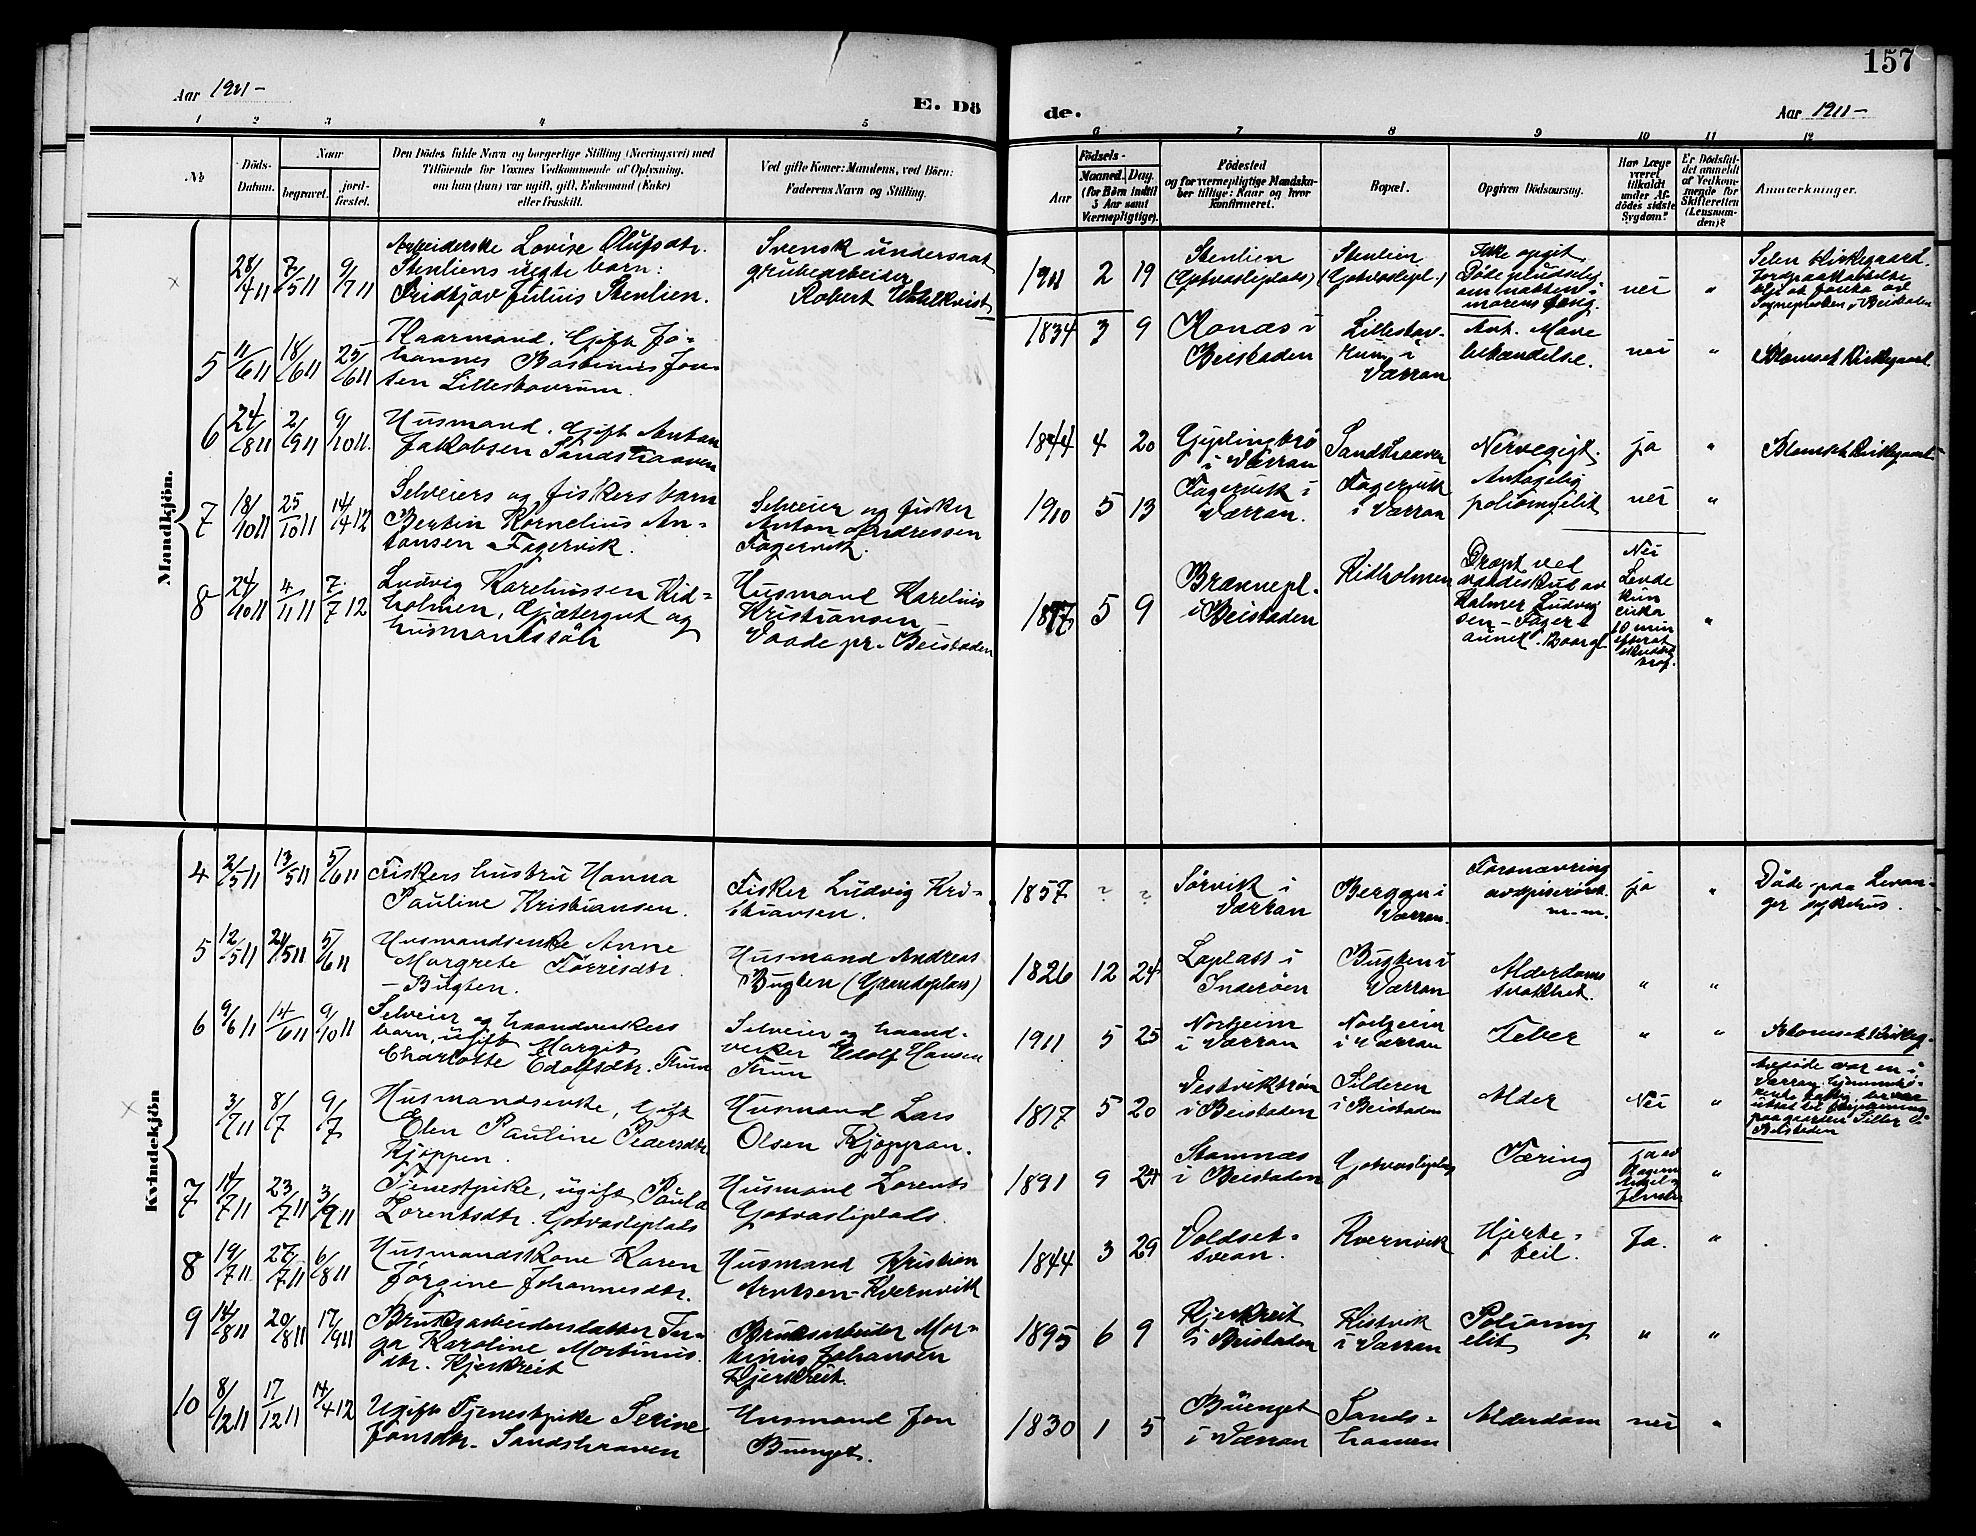 157
Aar 1911-
E. Dö
de.
Aar 1911-
1
2
3
4
5
6
7
8
9
10
11
12
№
Döds-
Datum.
Naar
begravet.
jord-
fæstet.
Den Dödes fulde Navn og borgerlige Stilling (Næringsvei) med
Tilföiende for Voxnes Vedkommende af Oplysning,
om han (hun) var ugift, gift, Enkemand (Enke)
eller fraskilt.
Ved gifte Koner: Mandens, ved Börn:
Faderens Navn og Stilling.
Födsels-
Aar
Maaned.
Dag.
(for Börn indtil
5 Aar samt
Værnepligtige).
Födested
og for værnepligtige Mandska-
ber tillige: Naar og hvor
konfirmeret.
Bopæl.
Opgiven Dödsaarsag.
Har Læge
været
tilkaldt
under Af-
dödes sidste
Sygdom?
Er Dödsfal-
det anmeldt
af Vedkom-
mende for
Skifteretten
(Lensman-
den)?
Anmærkninger.
Mandkjön.
28/4 11 7/5 11 9/7 11
Arbeiderske Lovise Olufsdtr.
Stenliens uegte barn:
Fridtjov Julius Stenlien.
Svensk undersaat
grubearbeider
Robert Wahlkvist
1911 2 19
Stenlien
(Gotvasliplads)
Stenlien
(Gotvaslipl.)
Ikke opgit
Döde pludselig
om natten i
morens fang.
nei
"
Selen kirkegaard.
Jordpaakastelse
Sognepresten i Beitstaden
5 11/6 11 18/6 11 25/6 11
Kaarmand. Gift Jo-
hannes Bastinus Jon-
sen Lillestavrum.
1834 3 9
Konæs i
Beistaden
Lillestav-
rum i
Værran
Ant. Mave
betændelse.
nei
"
Blomset Kirkegaard.
6 24/8 11 2/9 11 9/10 11.
Husmand. Gift Anton
Jakobsen Sandstraaven
1844 4 20
i Værran
Sandstraaven
Nervegigt.
ja
"
Blomset Kirkegaard
7 18/10 11 25/10 11 14/4 12
Selveiers og fiskers barn
Bertin Kornelius An-
tonsen Fagervik.
Selveier og fisker
Anton Andressen
Fagervik.
1910 5 13
Fagervik i
Værran.
Fagervik
i Værran
Antagelig
poliomyelit
nei
"
8 24/10 11 4/11 11 7/7 12
Ludvig Kareliussen Rid-
holmen, Gjætergut og
husmandssön
Husmand Karelius
Kristiansen
Vaade pr. Beistaden
1897 5 9
Brænnepl.
i Beistaden
Ridholmen
Dræpt ved
vaadeskud av
Halmer Ludvig
sen-Fager
aunet.
Nei
Levde
kun
cirka
10 min
efterat
"
Kvindekjön
4 2/5 11 13/5 11 5/6 11
Fiskers hustru Hanna
Pauline Kristiansen.
Fisker Ludvig Kri-
stiansen.
1857 ? ?
Sörvik i
Værran
Berggn i
Værran.
Forsnævring
av spiserör
m.m.
ja
"
Döde paa Levan-
ger sykehus.
5 12/5 11 21/5 11 5/6 11
Husmandsenke Anne
Margrete Törrisdtr.
- Bugten.
Husmand Andreas
Bugten (Grandeplass)
1826 12 24
Laplass i
Inderöen
Bugten i
Værran
Alderdoms
svakhet.
"
"
6 9/6 11 14/6 11 9/10 11
Selveier og haandverkers
barn, ugift Margit
Charlotte Edolfsdtr. Thun
Selveier og haand-
verker Edolf Hansen
Thun
1911 5 25
Norheim
i Værran
Norheim
i Værran
Feber
"
"
Blomset kirkeg.
3/7 11 8/7 9/7
Husmandsenke, Gift
Elen Pauline Pedersdtr
Kjöppen.
Husmand Lars
Olsen
1817 5 20
i Beistaden
Silderen
i Beistaden
Alder
Nei
"
Avdöde var en i
Værran hjemmehö-
paa gaarden Silder i
Beistaden
7 14/7 11 23/7 11 3/9 11
Tjenestpike, ugift Paula
Lorentsdtr. Gotvasliplads
Husmand Lorents
Gotvasliplads.
1891 9 24
Stamnæs
i Beistaden
Gotvasliplas
Tæring
ja av
"
8 19/7 11 27/7 11 6/8 11
Husmandskone Karen
Jörgine Johannesdtr.
Husmand Kristian
Arntsen-Kvernvik
1844 3 29
Voldset-
svean.
Kvernvik
Hjerte-
feil.
Ja.
"
9 14/8 11 20/8 11 17/9 11
Bruksarbeidersdatter In-
ga Karoline Mortinus
dtr. Kjerkreit
Bruksarbeider Mor-
tinius Johansen
Kjerkreit.
1895 6 9
Kjerkreit
i Beistaden
Kistvik
i Værran
Poliomy
elit
"
"
10 8/12 11 17/12 11 14/4 12
Ugift Tjenestpike Serine
Jonsdtr. Sandstraaven
Husmand Jon
Buenget.
1830 1 5
Buenget
i Værran
Sands-
traaven
Alderdom
nei
"